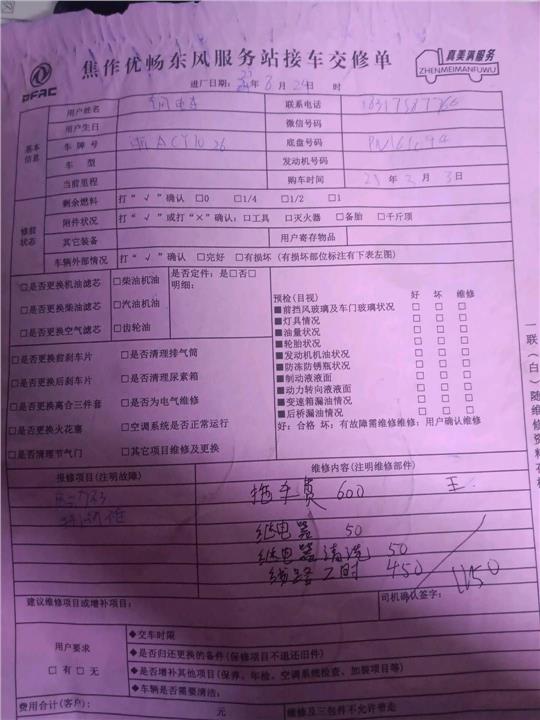 DFAC
焦作优畅东风服务站接车交修单
真美满服务
ZHENMEIMANFUWU
进厂日期: 年 8 月 24 日 时
基本信息
用户姓名
联系电话
用户生日
微信号码
车牌号
底盘号码
车型
发动机号码
当前里程
购车时间 年 月 3 日
修前状态
剩余燃料 打“√”确认 □0 □1/4 □1/2 □1
附件状况 打“√”或打“×”确认: □工具 □灭火器 □备胎 □千斤顶
其它装备 用户寄存物品
车辆外部情况 打“√”确认 □完好 □有损坏 (有损坏部位标注有下表左图)
□是否更换机油滤芯 □柴油机油 是否定件: 是□否□
明细:
□是否更换柴油滤芯 □汽油机油
□是否更换空气滤芯 □齿轮油
预检(目视) 好 坏 维修
■前挡风玻璃及车门玻璃状况 □ □ □
■灯具情况 □ □ □
■油量状况 □ □ □
■轮胎状况 □ □ □
■发动机机油状况 □ □ □
■防冻防锈瓶状况 □ □ □
■制动液液面 □ □ □
■动力转向液液面 □ □ □
■变速箱漏油情况 □ □ □
■后桥漏油情况 □ □ □
好: 合格 坏: 有故障需维修维修: 用户确认维修
□是否更换前刹车片 □是否清理排气筒
□是否更换后刹车片 □是否清理尿素箱
□是否更换离合三件套 □是否为电气维修
□是否更换火花塞 □空调系统是否正常运行
□是否清理节气门 □其它项目维修及更换
一联(白)随维修资料存根
报修项目(注明故障) 维修内容(注明维修部件)
拖车费 600 王
继电器 50
继电器清洗 50
线路工时 450
1150
建议维修项目或增补项目: 司机确认签字:
用户要求
□有□无
◆交车时限
◆是否归还更换的备件(保修项目不退还旧件)
◆是否增补其他项目(保养、年检、空调系统检查、加装项目等)
◆车辆是否需要清洁:
费用合计(客户): 元 维修及三包件不允许带走